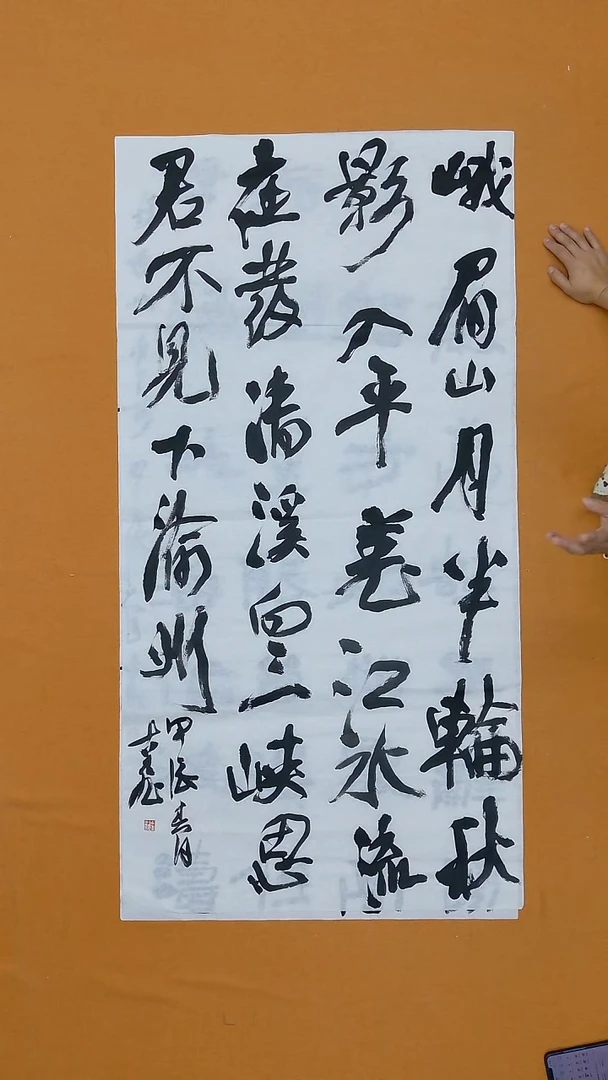 峨眉山月半輪秋
影入平羌江水流
夜發清溪向三峽思
君不見下渝州
甲辰春月